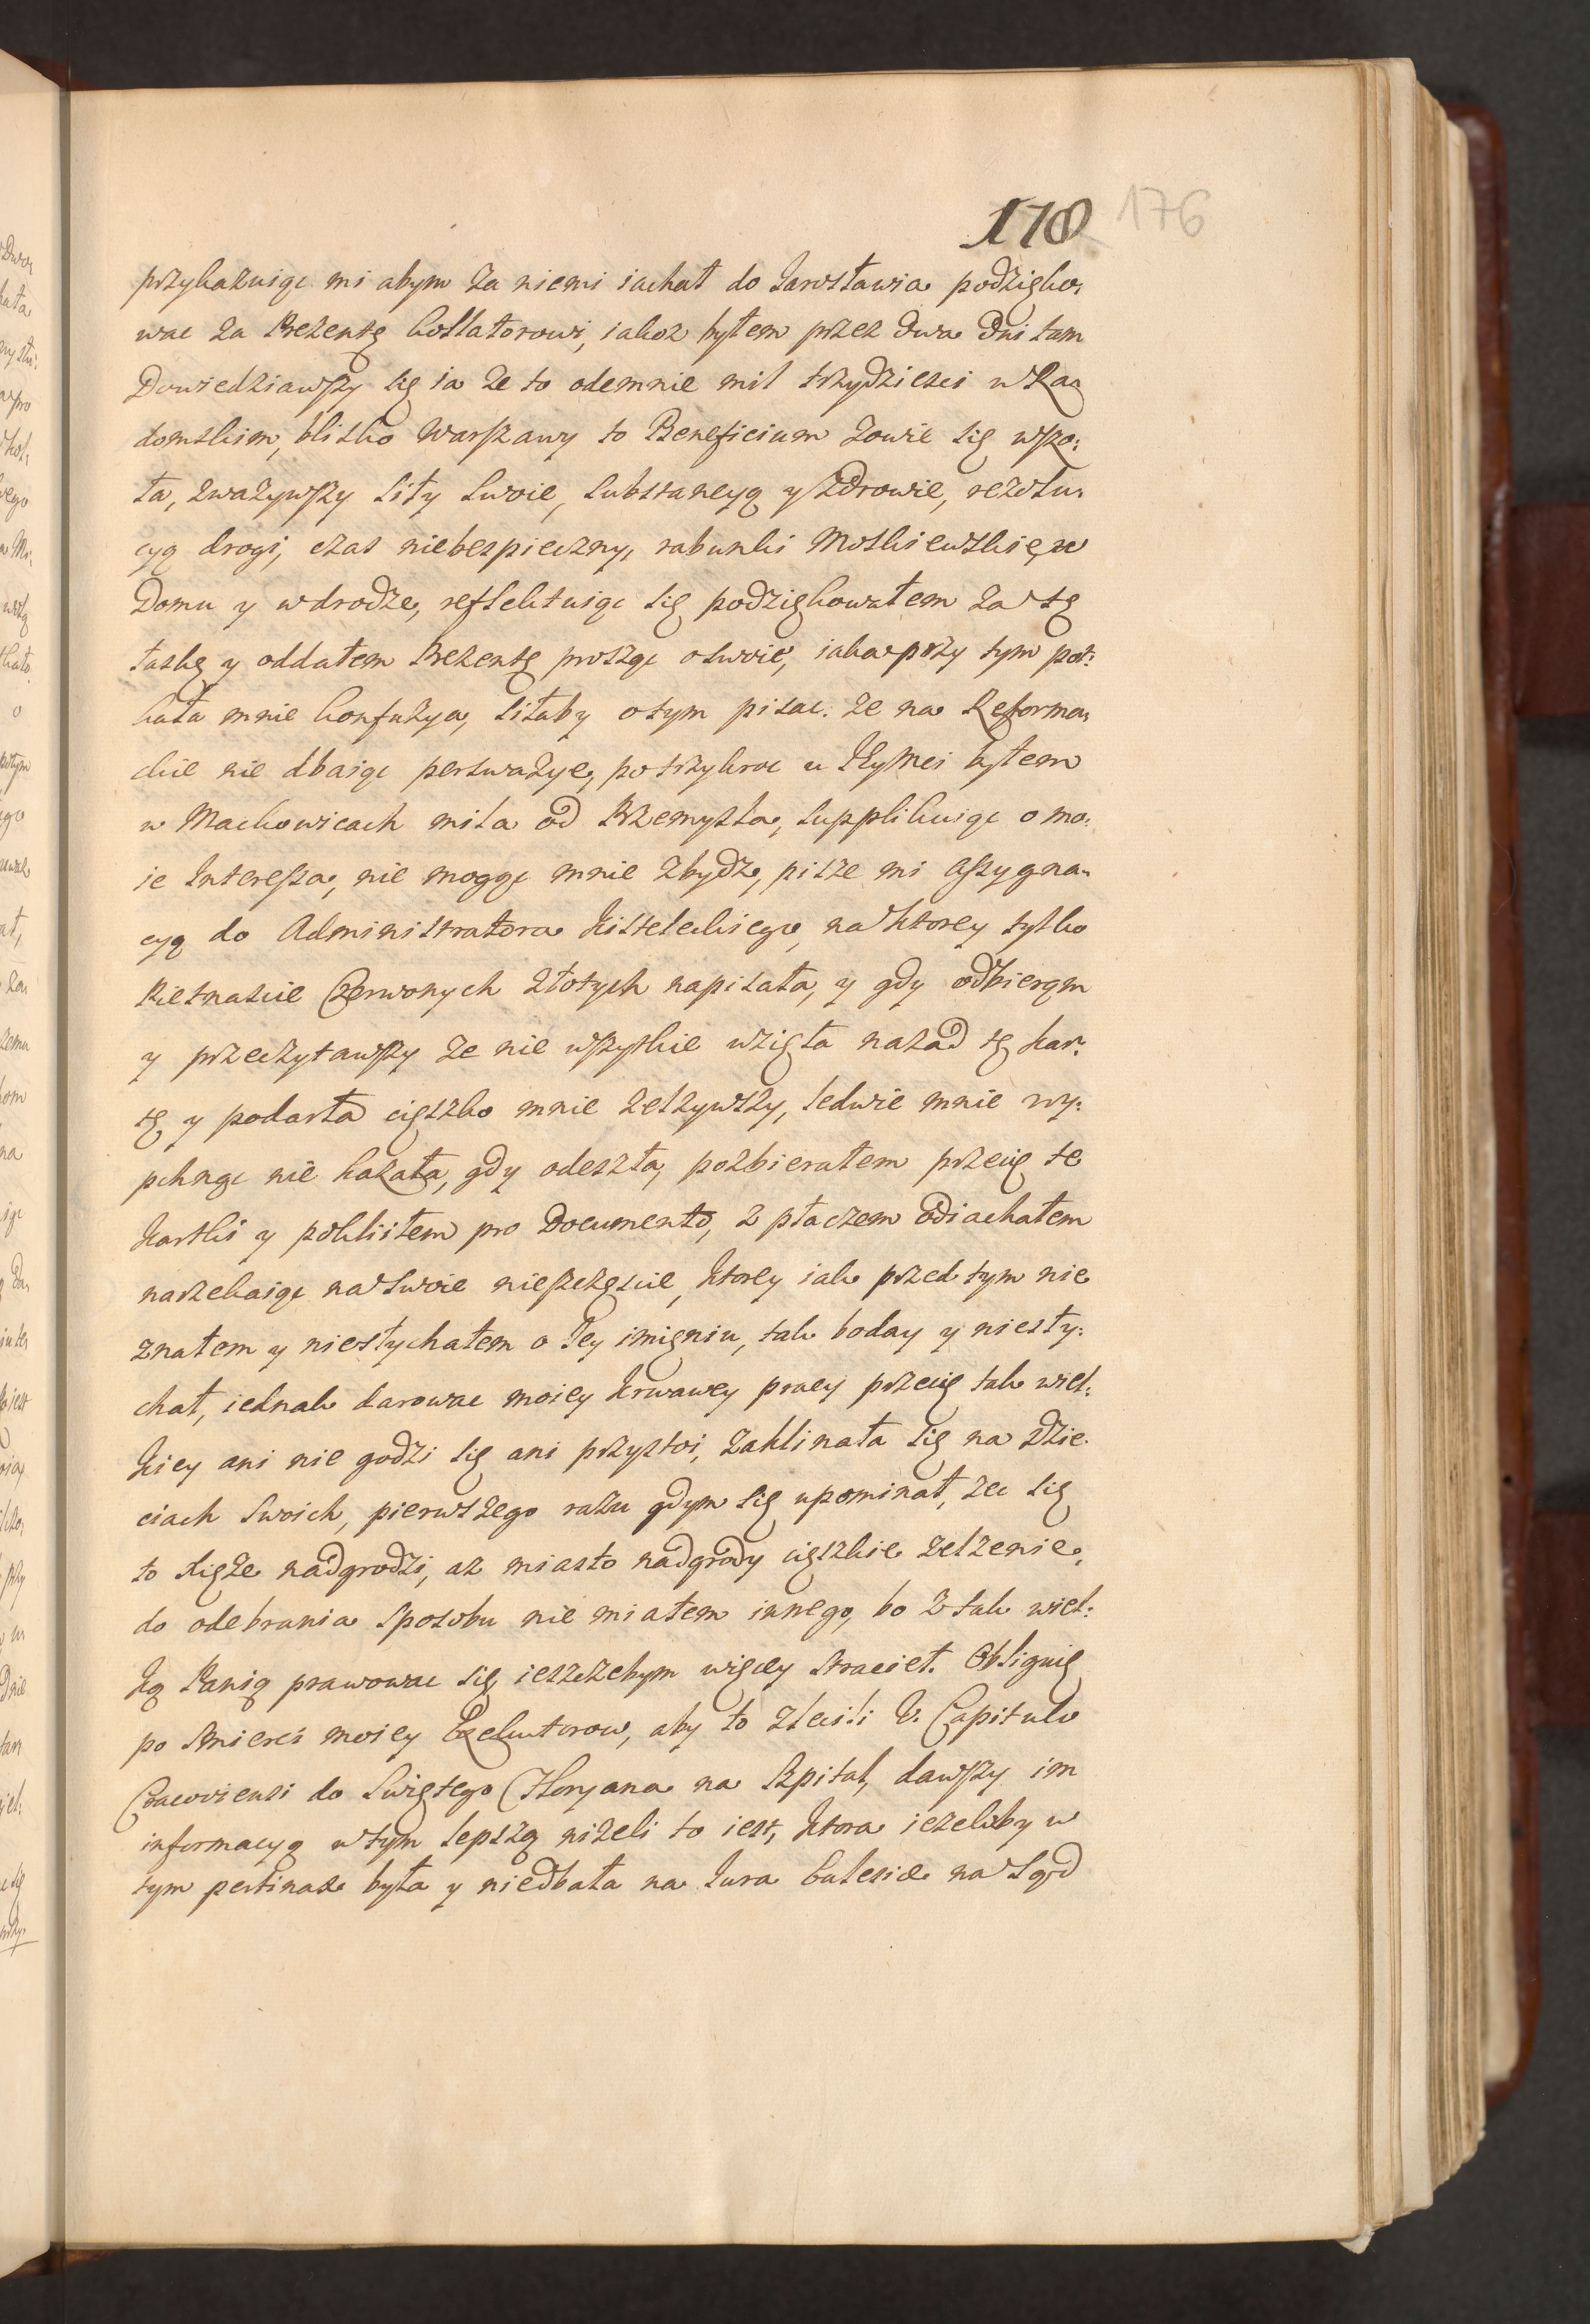 178 176
przykazuiąc mi abym za niemi iachał do Jarosławia podzięko:
wac za Prezentę kollatorowi, iakoz byłem przez dwa dni tam
Dowiedziawszy się ia ze to odemnie mil trzydziesci w Ra:
domskim, blisko Warszawy to Beneficium zowie się wszo:
ła, zwazywszy siły swoie, substancyą y zdrowie, rezolu:
cyą drogi, czas niebespieczny, rabunki Moskiewskie, w
Domu y wdrodze, reflektuiąc się podziękowałem za tę
łaskę y oddałem Prezentę prosząc oswoie, iaka przy tym pot:
kała mnie konfuzya, siłaby otym pisac. Ze na Reforma:
ckie nie dbaiąc perswazye, potrzykroc u Jeymci byłem
w Mackowicach mila od Przemysla, supplikuiąc o mo:
ie Interessa, nie mogąc mnie zbydz, pisze mi assygna:
cyą do Administratora Kisieleckiego, na ktorey tylko
Pietnascie Czerwonych Złotych napisała, y gdy odbierąm
y przeczytawszy ze nie wszystkie wzięła nazad tę kar:
tę y podarła cięszko mnie zelzywszy, ledwie mnie wy:
pchnąc nie kazała, gdy odeszła, pozbierałem przecię te
kartki y poklilem pro Documento, z płaczem odiachałem
narzekaiąc na swoie nieszczęscie, ktorey iak przed tym nie
znałem y niesłychałem o Jey imięniu, tak boday y niesły:
chał, iednak darowac moiey krwawey pracy przecię tak wiel:
kiey ani nie godzi się ani przystoi, zaklinała się na dzie:
ciach swoich, pierwszego razu gdym się upominał, zec się
to Xięze nadgrodzi, az miasto nadgrody cięszkie zelzenie,
do odebrania sposobu nie miałem innego, bo z tak wiel:
ką Panią prawowac się ieszczebym więcey stracieł. Obliguię
po smierci moiey Exekutorow, aby to zlecili V. Capitulo
Cracoviensi do Swiętego Floryana na Szpital, dawszy im
informacyą wtym lepszą nizeli to iest, ktora iezeliby w
tym pertinax była y niedbała na Jura Eulesiæ na Sąd